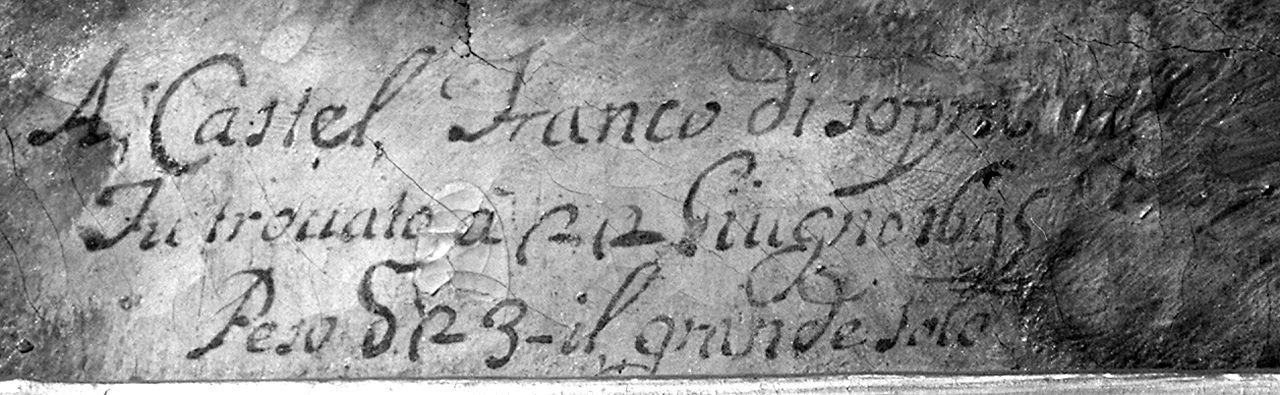 A Castel Franco di sopra
Fu trouato à 22 Giugno 1695
Peso 23 - il grande solo